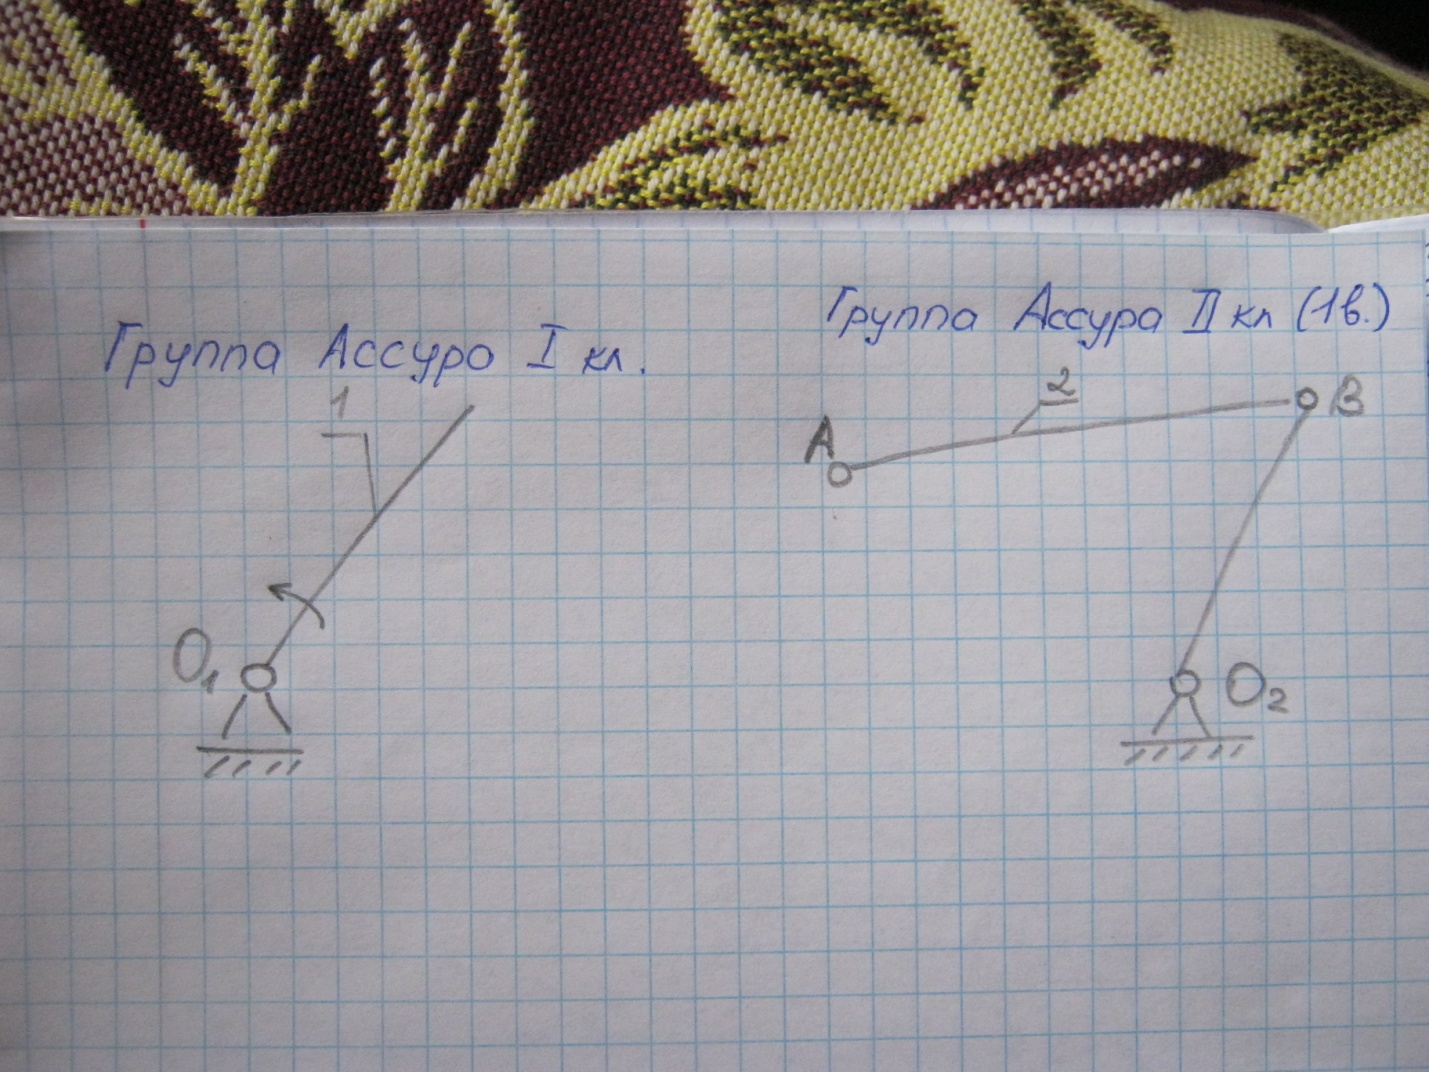 Группа Ассуро I кл.
1
O₁
Группа Ассура II кл (1в.)
2
A
B
O₂